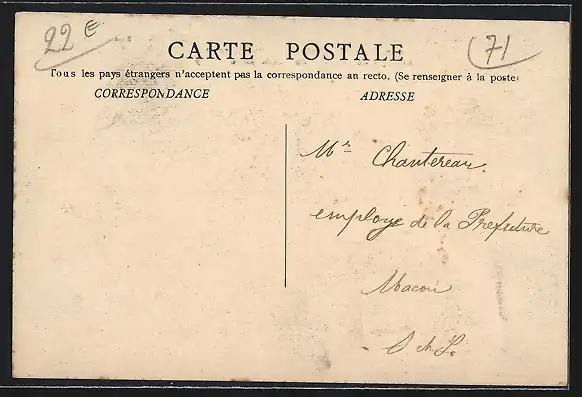 22 €
71
CARTE POSTALE
Tous les pays étrangers n'acceptent pas la correspondance au recto. (Se renseigner à la poste)
CORRESPONDANCE
ADRESSE
Mr Chantereau
employe de la Prefecture
Macon
S et L.